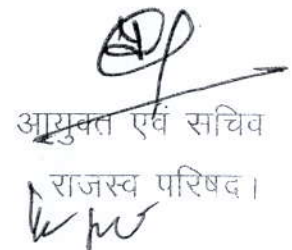 आयुक्त एवं सचिव
राजस्व परिषद।